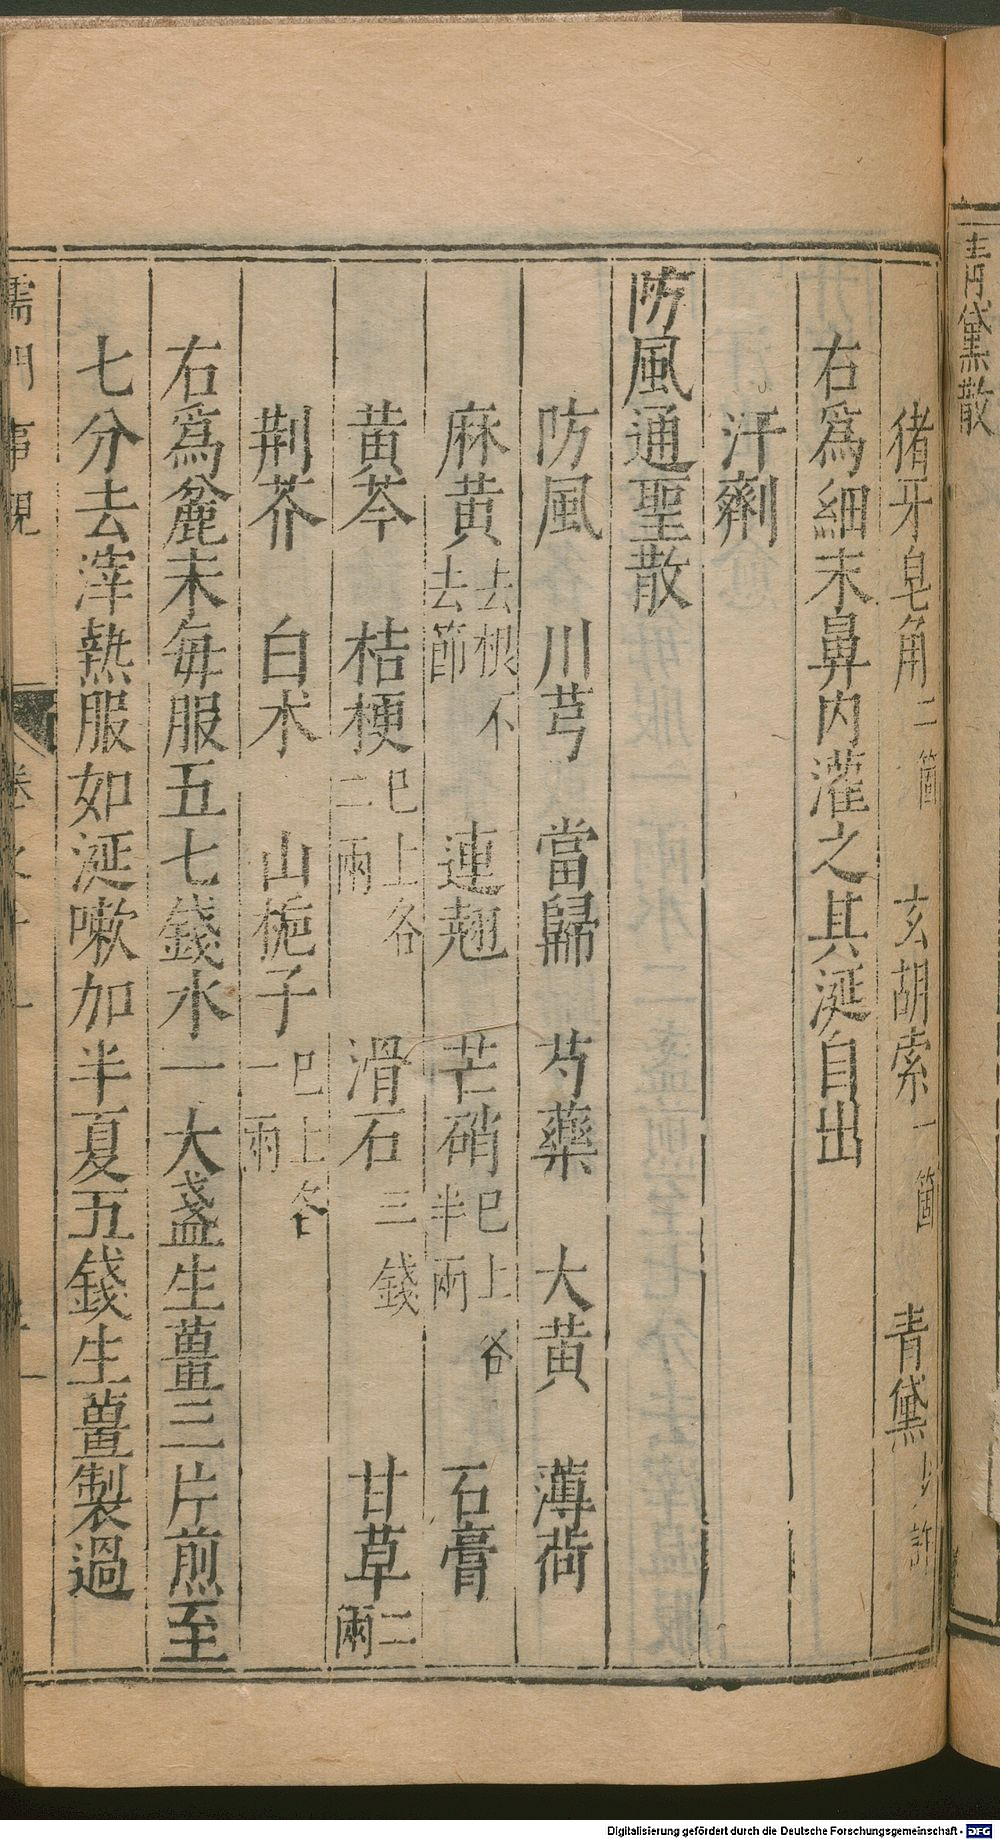 青黛散
猪牙皂角二箇 玄胡索一箇 青黛少許
右爲細末鼻内灌之其涎自出
汗劑
防風通聖散
防風 川芎 當歸 芍藥 大黄 薄荷
麻黄去根不去節 連翘 芒硝巳上各半兩 石膏
黄芩 桔梗巳上各二兩 滑石三錢 甘草二兩
荆芥 白术 山梔子巳上各一兩
右爲麄末每服五七錢水一大盞生薑三片煎至
七分去滓熱服如涎嗽加半夏五錢生薑製過
儒門事親
Digitalisierung gefördert durch die Deutsche Forschungsgemeinschaft - DFG